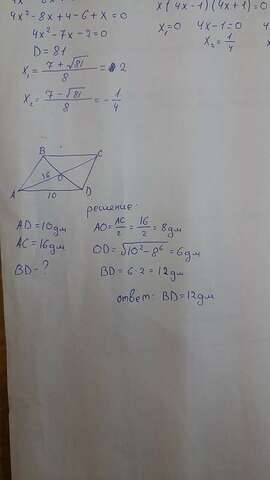 4x² - 8x + 4 - 6 + x = 0
4x² - 7x - 2 = 0
D = 81
x₁ = (7 + √81)/8 = 2
x₂ = (7 - √81)/8 = -1/4
x(4x-1)(4x+1) = 0
x₁ = 0 4x - 1 = 0
x₂ = 1/4
B C
16 O
A 10 D
решение:
AD = 10дм
AC = 16дм
BD - ?
AO = AC/2 = 16/2 = 8дм
OD = √10² - 8² = 6дм
BD = 6·2 = 12дм
ответ: BD = 12дм